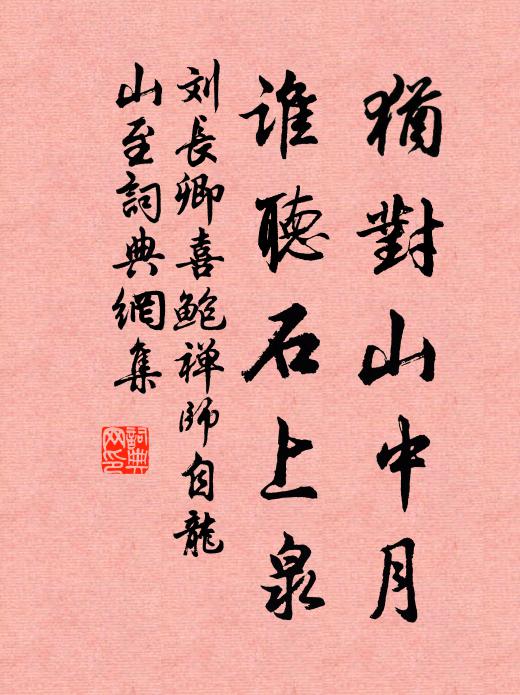 猶對山中月
誰聽石上泉
刘長卿喜鮑禅師自龍
山至詞典網集
詞典
网印